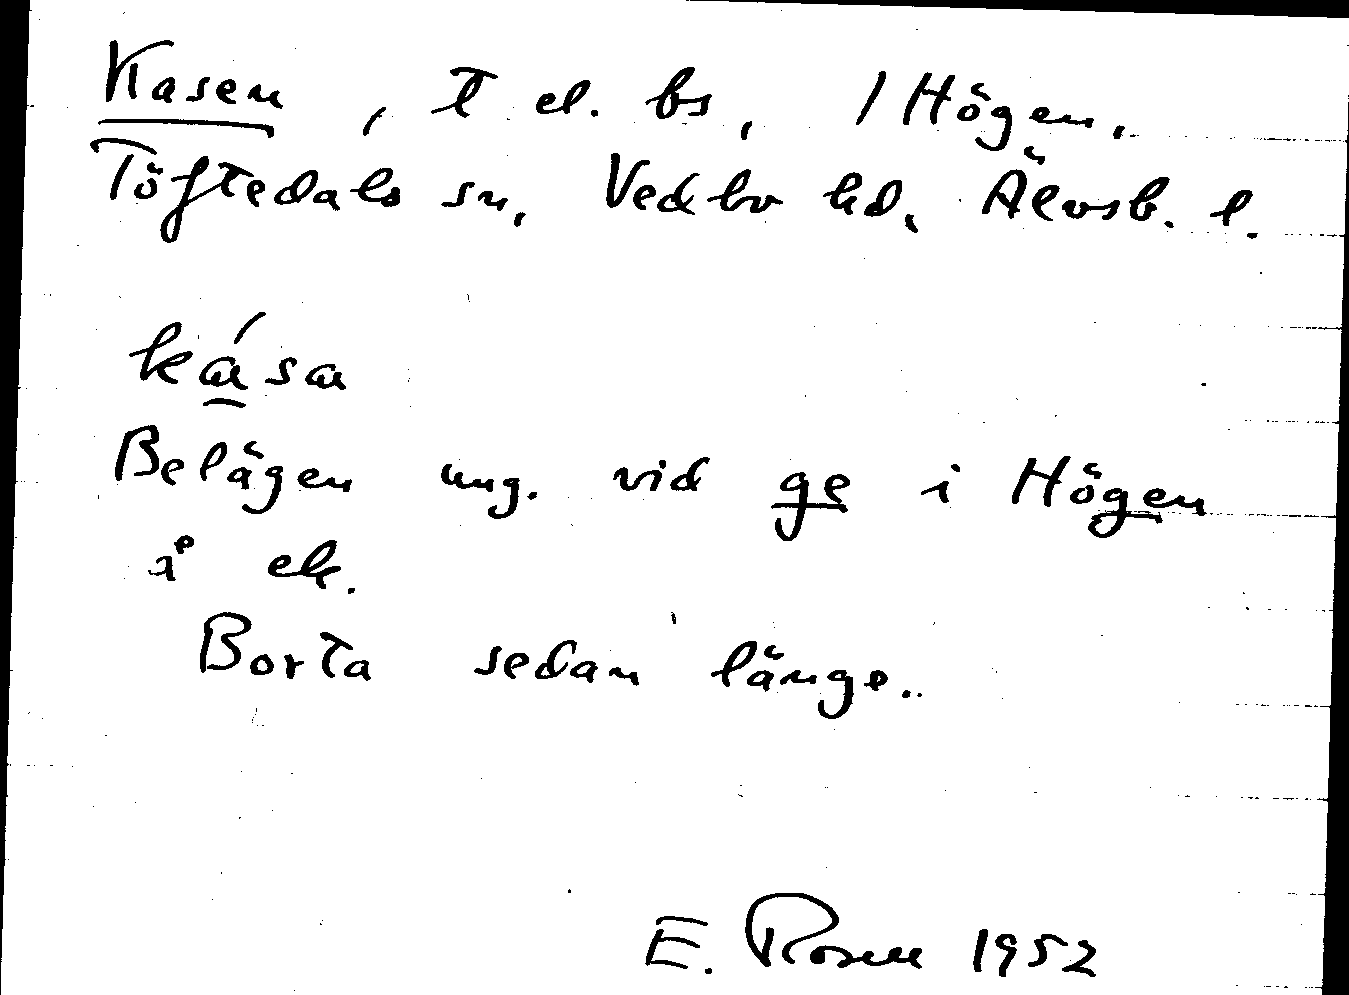 Kasen, t el. bs, 1 Högen,
Töftedals sn, Vedbo hd, Älvsb. l.
ká̱sa
Belägen ung. vid ge i Högen
å ek.
Borta sedan länge.
E. Rosell 1952